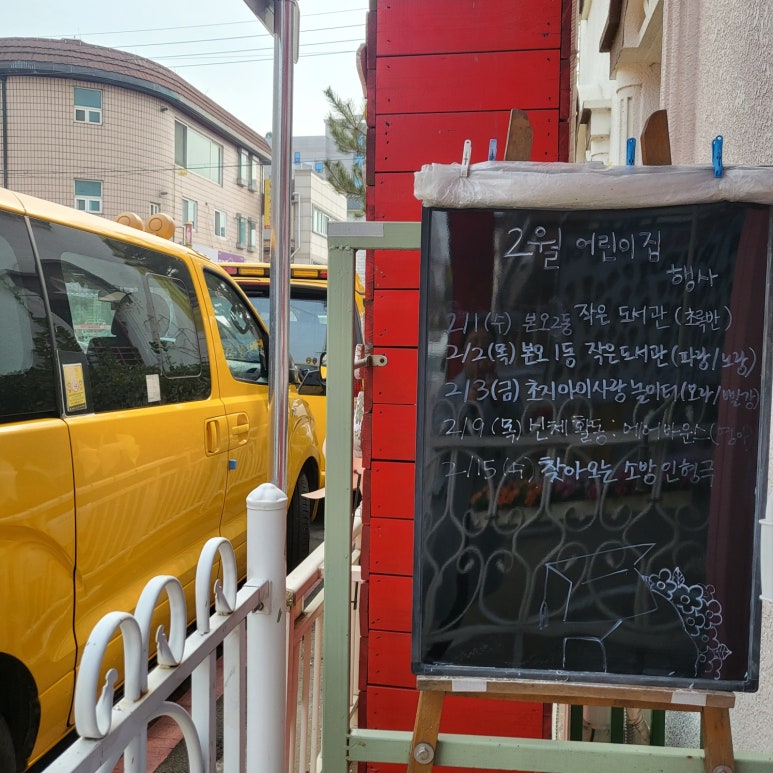 2월 어린이집
행사
2/1(수) 본오2동 작은 도서관 (초록반)
2/2(목) 본오1동 작은도서관 (파랑/노랑)
2/3(금) 초지아이사랑 놀이터(보라/빨강)
2/9 (목) 신체활동: 에어바운스
2/15(수) 찾아오는 소방 인형극